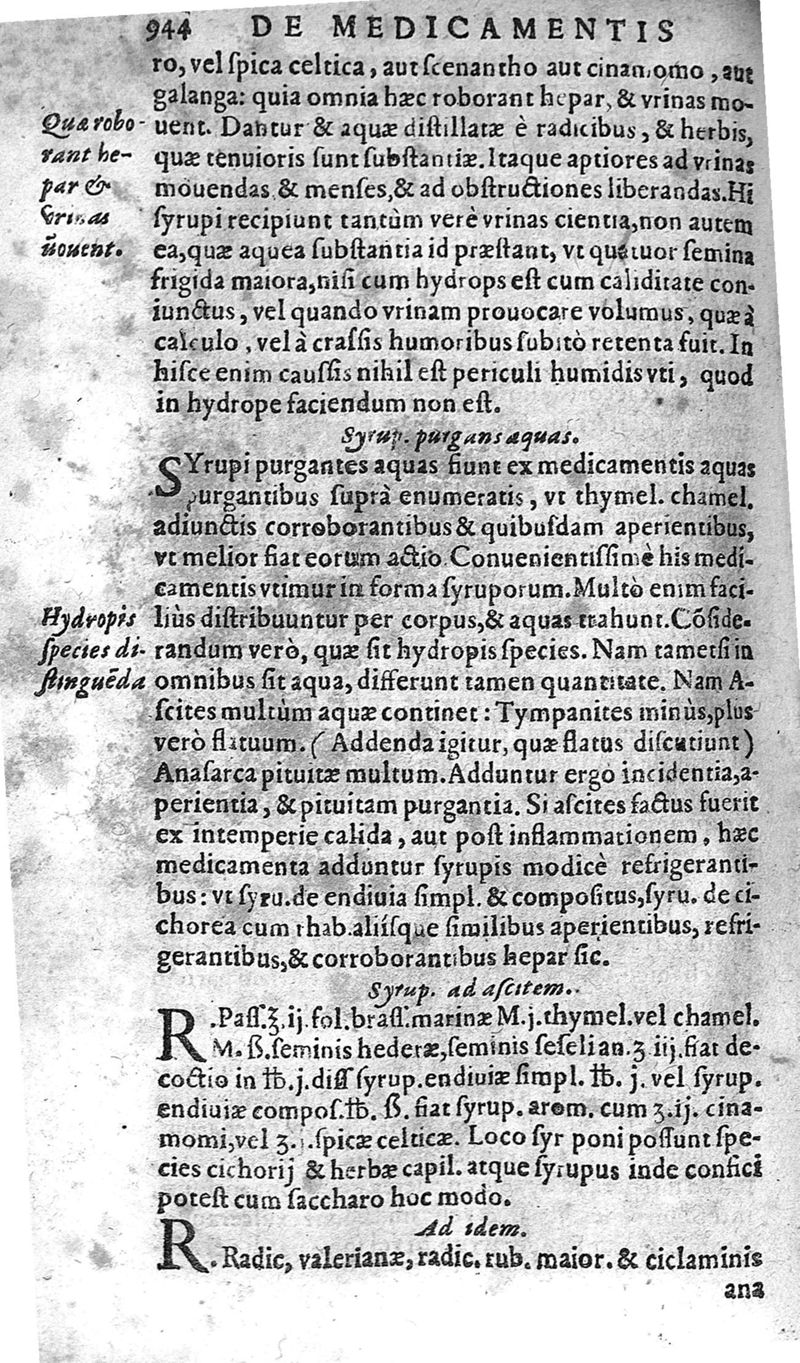 944 DE MEDICAMENTIS
ro, vel ſpica celtica, aut ſcenantho aut cinamomo, aut
galanga: quia omnia hæc roborant hepar, & vrinas mo-
Quæ robo-
uent. Dantur & aquæ diſtillatæ è radicibus, & herbis,
rant he-
quæ tenuioris ſunt ſubſtantiæ. Itaque aptiores ad vrinas
par &
mouendas & menſes, & ad obſtructiones liberandas. Hi
vrinas
ſyrupi recipiunt tantùm verè vrinas cientia, non autem
mouent.
ea, quæ aquea ſubſtantia id præſtant, vt quatuor ſemina
frigida maiora, niſi cum hydrops eſt cum caliditate con-
iunctus, vel quando vrinam prouocare volumus, quæ à
calculo, vel à craſſis humoribus ſubitò retenta fuit. In
hiſce enim cauſſis nihil eſt periculi humidis vti, quod
in hydrope faciendum non eſt.
Syrup. purgans aquas.
SYrupi purgantes aquas fiunt ex medicamentis aquas
purgantibus ſuprà enumeratis, vt thymel. chamel.
adiunctis corroborantibus & quibuſdam aperientibus,
vt melior fiat eorum actio. Conuenientiſſimè his medi-
camentis vtimur in forma ſyruporum. Multò enim faci-
Hydropis
liùs diſtribuuntur per corpus, & aquas trahunt. Cõſide-
ſpecies di-
randum verò, quæ ſit hydropis ſpecies. Nam tametſi in
ſtinguẽda
omnibus ſit aqua, differunt tamen quantitate. Nam A-
ſcites multùm aquæ continet: Tympanites minùs, plus
verò flatuum. (Addenda igitur, quæ flatus diſcutiunt)
Anaſarca pituitæ multum. Adduntur ergo incidentia, a-
perientia, & pituitam purgantia. Si aſcites factus fuerit
ex intemperie calida, aut poſt inflammationem, hæc
medicamenta adduntur ſyrupis modicè refrigeranti-
bus: vt ſyru. de endiuia ſimpl. & compoſitus, ſyru. de ci-
chorea cum rhab. aliíſque ſimilibus aperientibus, refri-
gerantibus, & corroborantibus hepar ſic.
Syrup. ad aſcitem.
R. Paſſ. ℥. ij. fol. braſſ. marinæ M. j. thymel. vel chamel.
M. ß. ſeminis hederæ, ſeminis ſeſelian. ʒ iij. fiat de-
coctio in ℔. j. diſſ ſyrup. endiuiæ ſimpl. ℔. j. vel ſyrup.
endiuiæ compoſ. ℔. ß. fiat ſyrup. arom. cum ʒ. ij. cina-
momi, vel ʒ. ſpicæ celticæ. Loco ſyr poni poſſunt ſpe-
cies cichorij & herbæ capil. atque ſyrupus inde confici
poteſt cum ſaccharo hoc modo.
Ad idem.
R. Radic, valerianæ, radic. rub. maior. & ciclaminis
ana